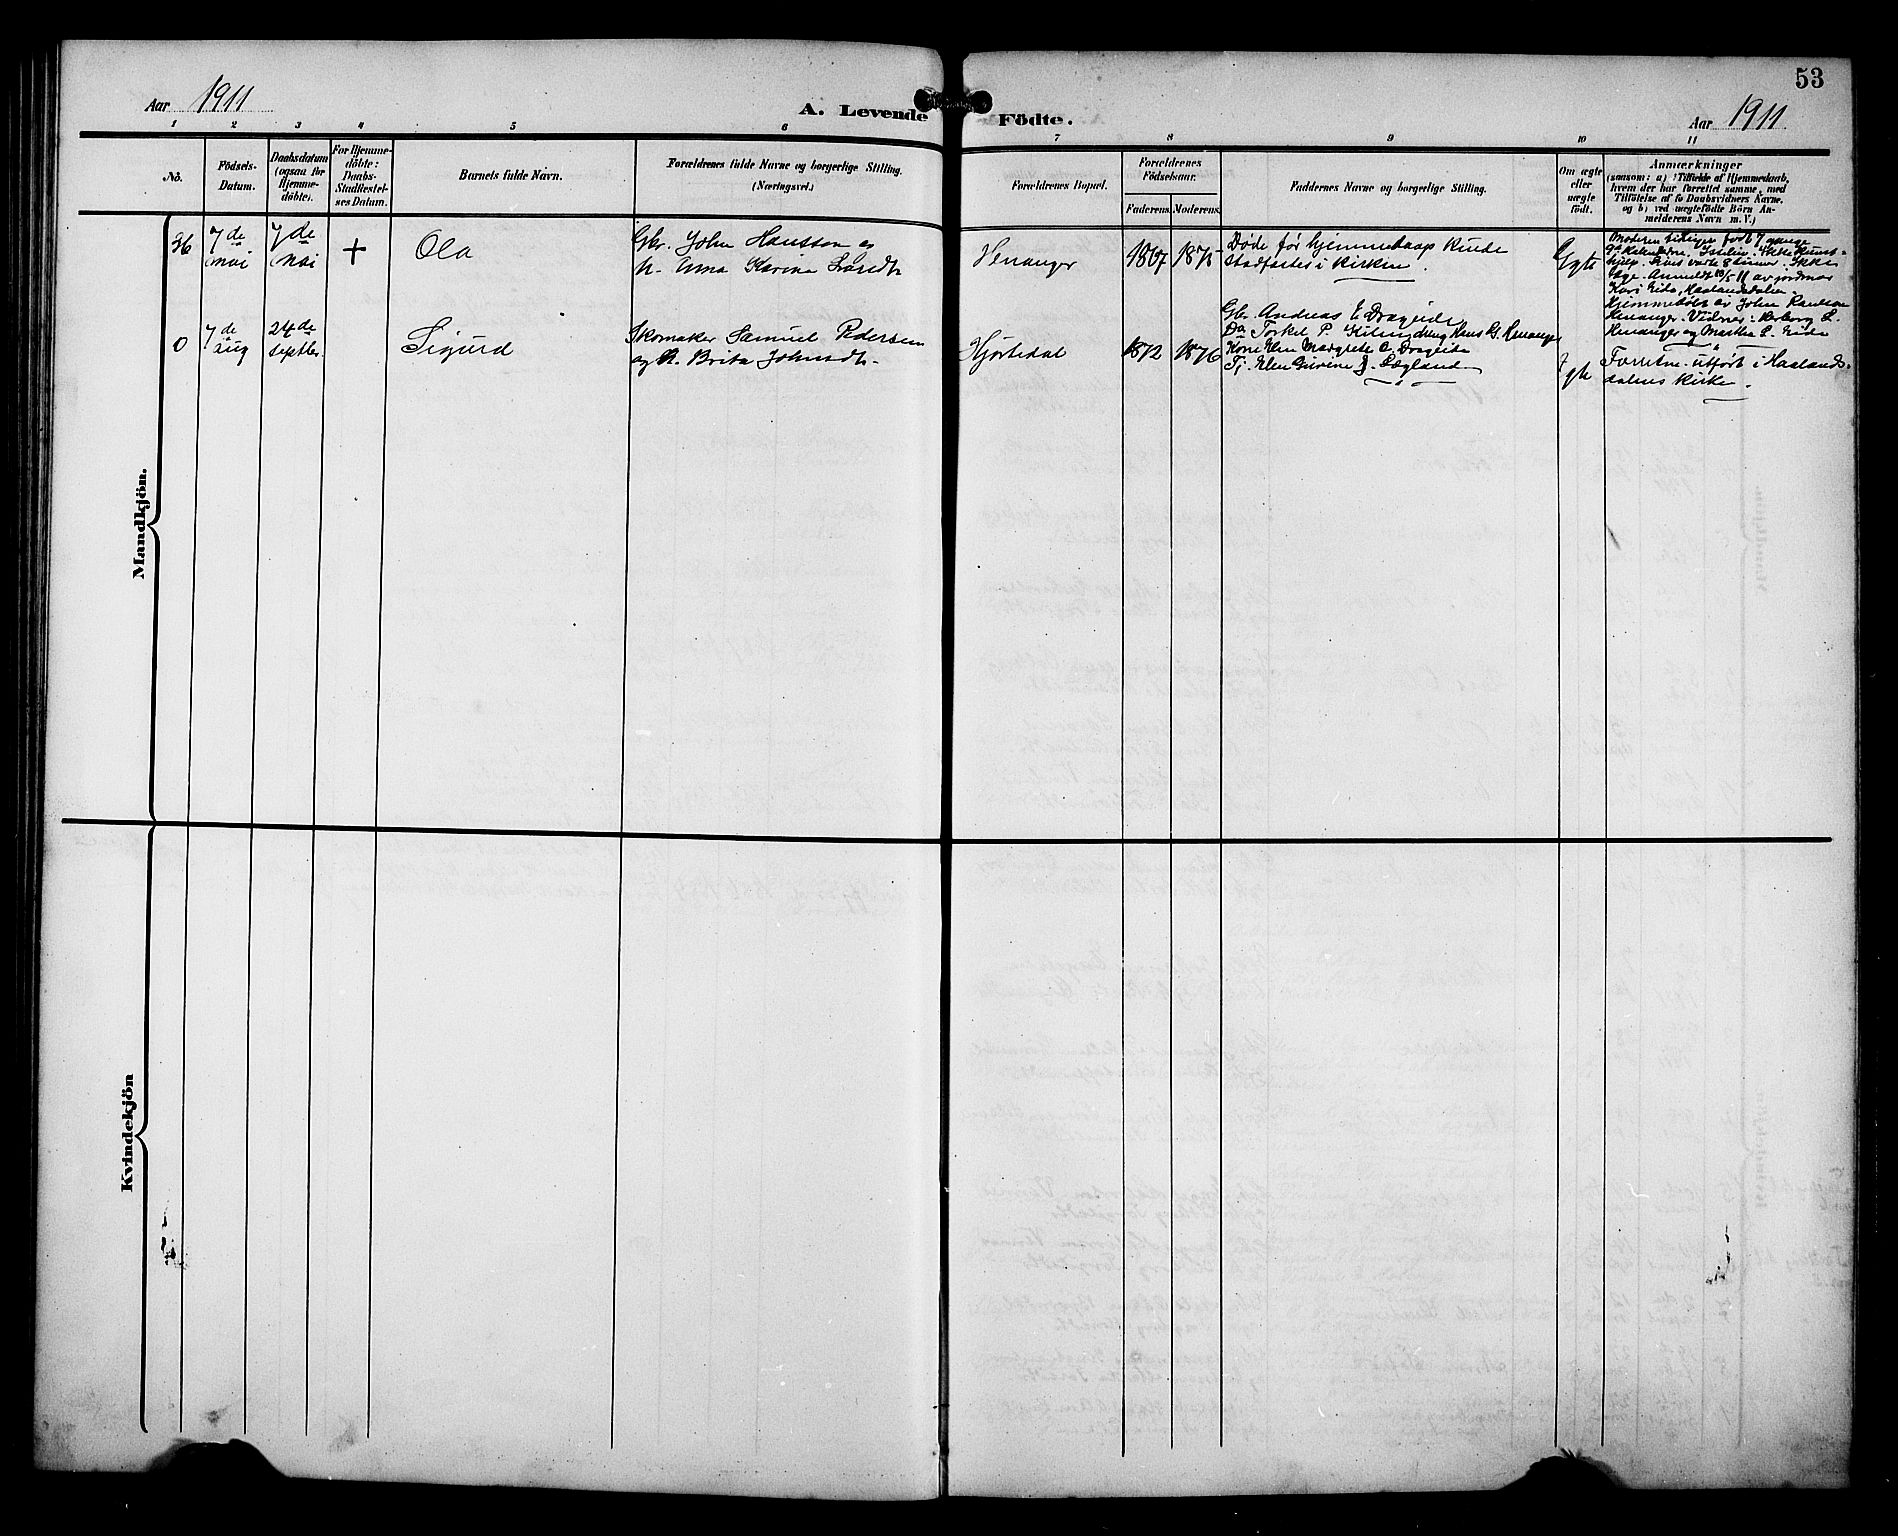 53
Aar 1911
A. Levende Födte.
Aar 1911
1 2 3 4 5 6 7 8 9 10 11
No.
Födsels-
Datum.
Daabsdatum
(ogsaa for
Hjemme-
döbte).
For Hjemme-
döbte:
Daabs-
Stadfæstel-
ses Datum.
Barnets fulde Navn.
Forældrenes fulde Navne og borgerlige Stilling.
(Næringsvei.)
Forældrenes Bopæl.
Forældrenes
Födselsaar.
Faderens. Moderens.
Faddernes Navne og borgerlige Stilling.
Om ægte
eller
uægte
födt.
Anmærkninger
(saasom: a) i Tilfælde af Hjemmedaab,
hvem der har forrettet samme, med
Tilföielse af to Daabsvidners Navne,
og b) ved uægtefödte Börn An-
melderens Navn m. V.)
Mandkjön.
36
7de
mai
7de
mai
+
Ola
Gbr. John Hansson og
h. Anna Karina
Henanger
1867
Døde før hjemmedaap kunde
stadfæstes i kirken.
Egte
Moderen tidligere født 7 gange
Ikke Kunst-
hjelp. varte 8 timer. Ikke
tage. Anmeldt 10/5 11 av jordmor
Kari Eide, Haalandsdalen.
Hjemmedøbt av John
Henanger. Vidner:
Henanger og Martha L. Eide
0
7de
aug
24de
septbr.
Sigurd
Skomaker Samuel Pedersen
og h. Brita Johnsdtr.
Hjortedal
1872
1876
Gbr. Andreas E. Drageide
Da Torkel P. Hans G. Henanger
Kone Elen Margrete A. Drageide
Pi. Elen
Egte
Forretn. utført i Haalands-
dalens kirke.
Kvindekjön